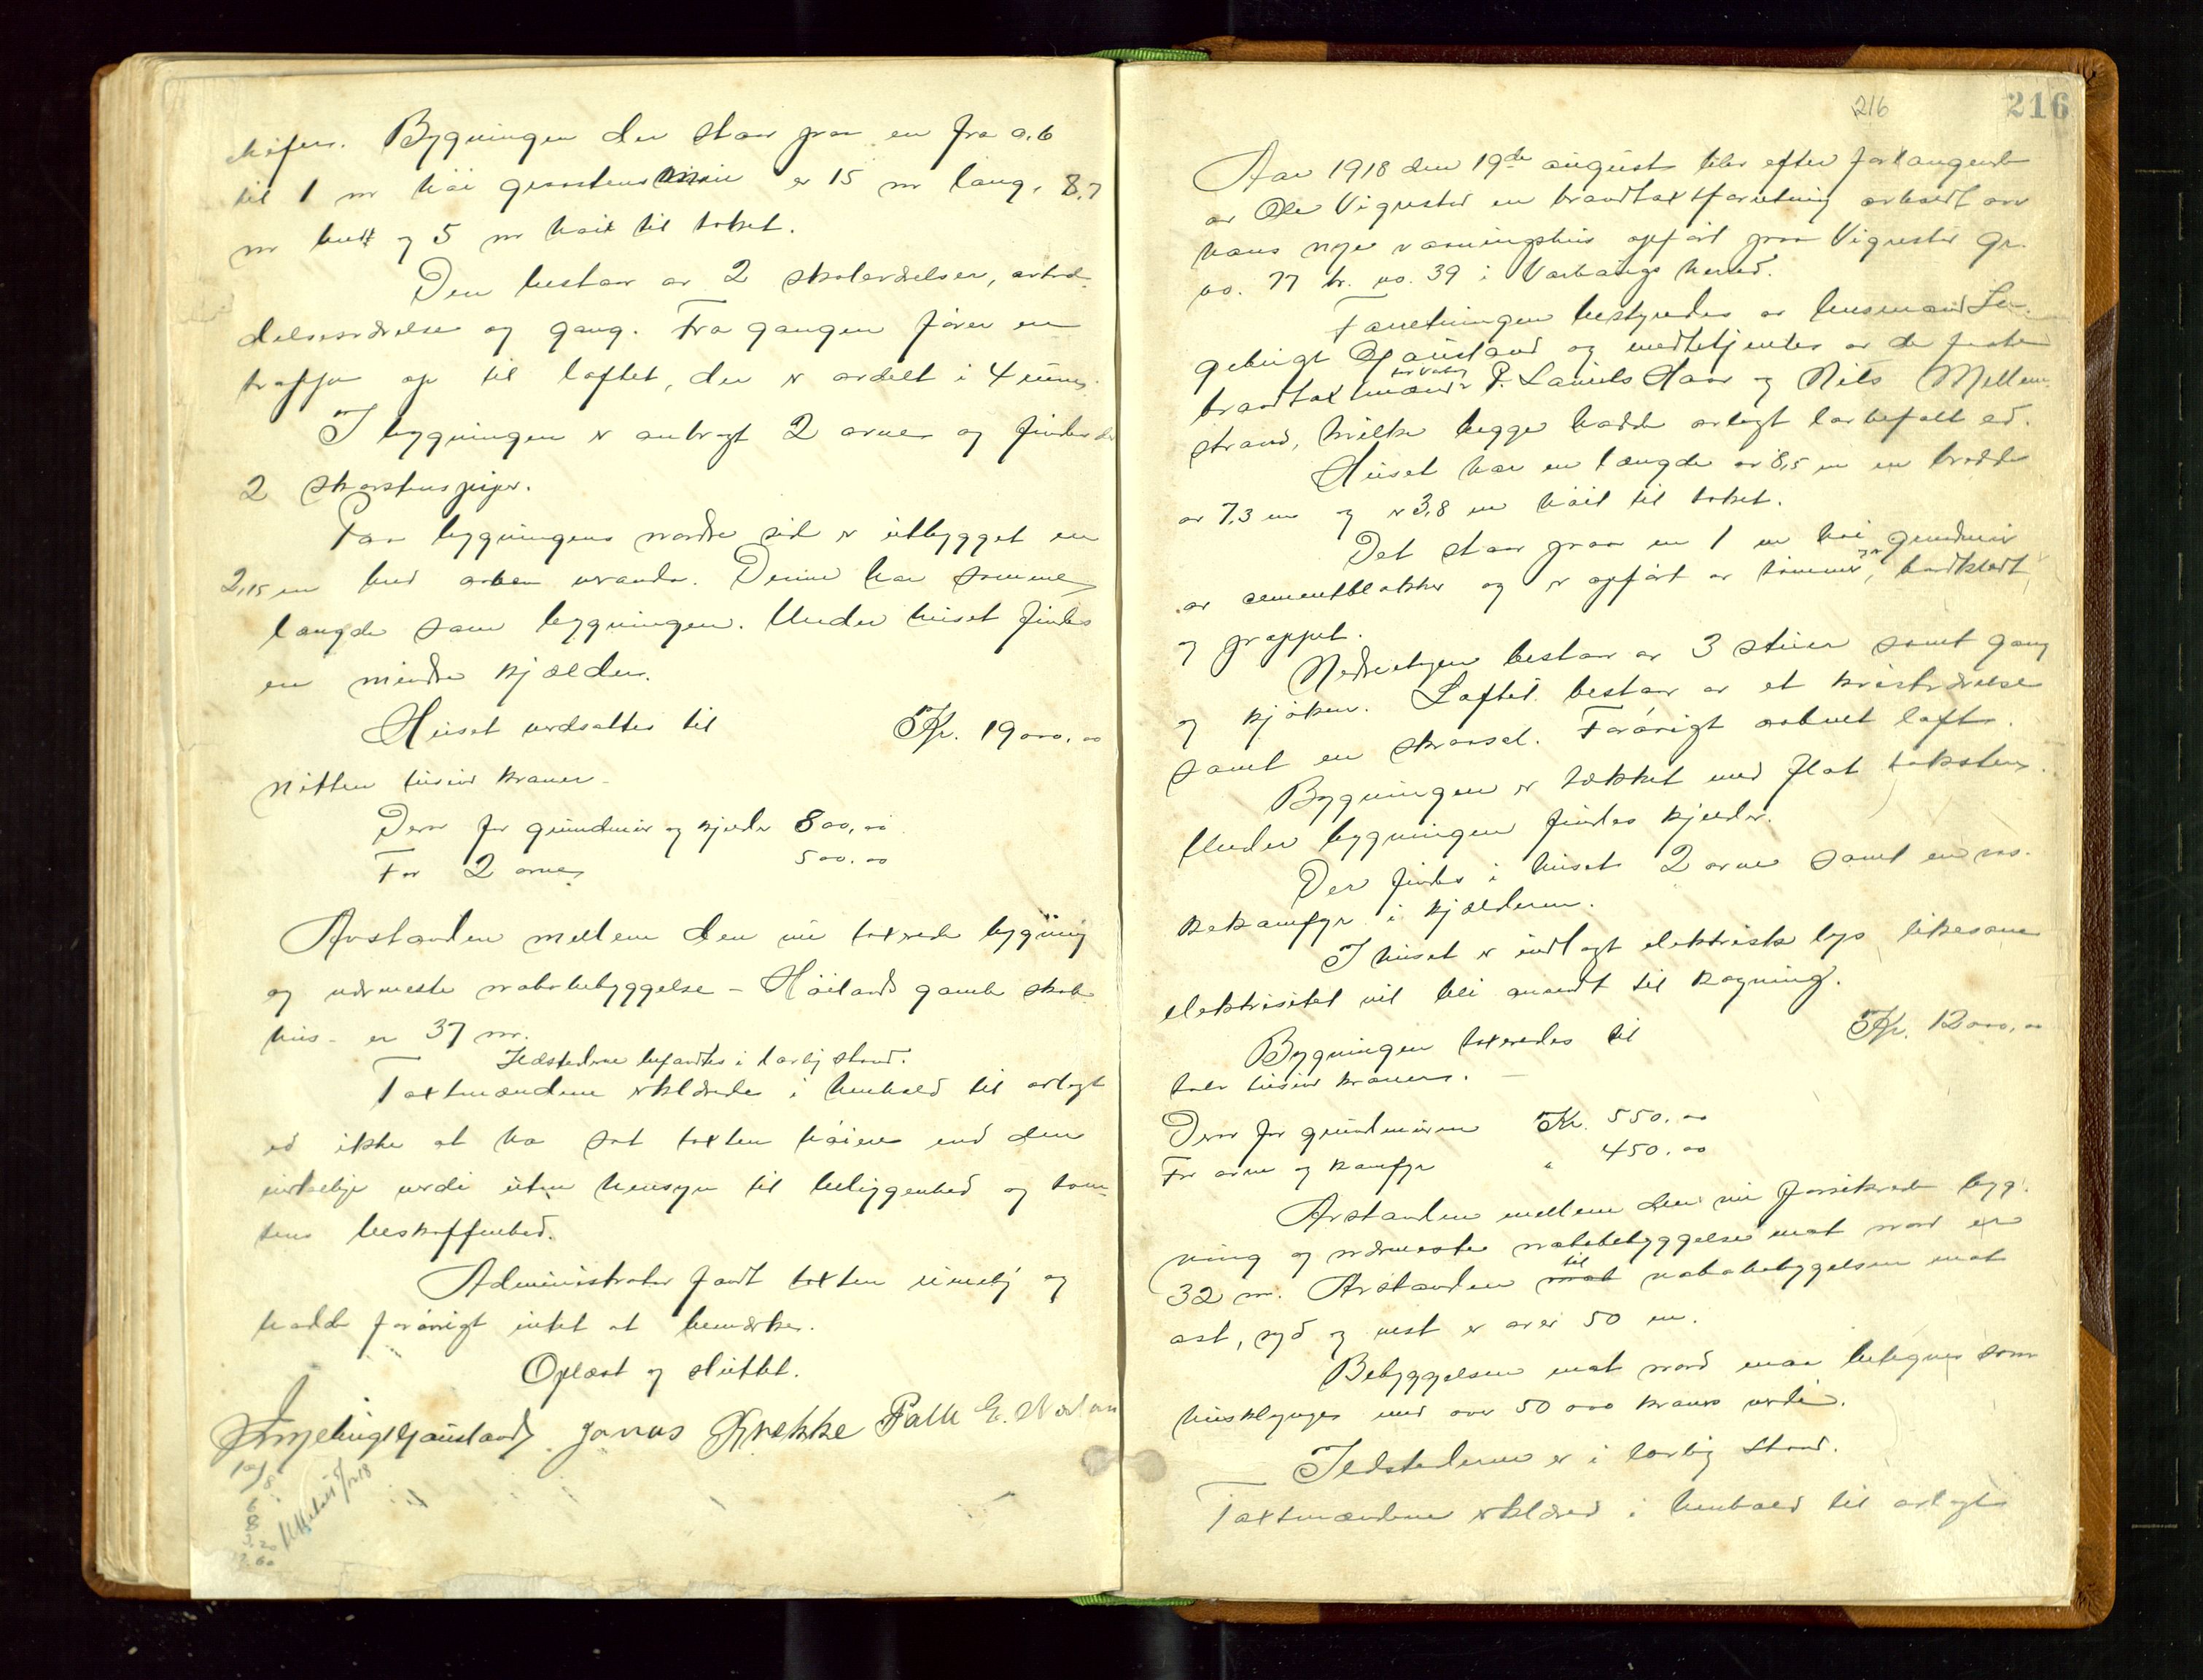 skifer. Bygningen der staar paa en fra 0.6
til 1 m høi graastens mur er 15 m lang, 8.7
m bred og 5 m høit til taket.
Den bestaar av 2 skoleværelser, arbei-
delsesværelse og gang. Fra gangen fører en
trappe op til loftet, der er avdelt i 4 rum.
I bygningen er anbragt 2 ovner og findes der
2 skorstenspiper.
Paa bygningens nordre side er utbygget en
2,15 m bred aapen veranda. Denne har samme
længde som bygningen. Under huset findes
en mindre kjælder.
Huset verdsattes til Kr. 19000,00
nitten tusind kroner
Derav for grundmur og kjælder 800,00
For 2 ovne 500.00
Avstanden mellem den nu takserede bygning
og nærmeste nabobebyggelse - Høilands gamle skole
hus - er 37 m.
Ildstederne befandtes i lovlig stand.
Takstmændene erklærede i henhold til avlagt
ed ikke at ha sat taksten høiere end den
virkelige verdi uten hensyn til beliggenhed og tom-
tens beskaffenhed.
Administrator fandt taksten rimelig og
hadde forøvrigt intet at bemerke.
Oplæst og sluttet.
Ingebrigt Gausland Jonas Kyrkke Palle E.
216
216
Aar 1918 den 19de august blev efter forlangende
av Ole Vigrestad en brandtakstforretning avholdt over
hans nye vaaningshus opført paa Vigrestad gr.
no. 77 br. no. 39 i Varhaugs herred.
Forretningen bestyredes av lensmand In-
gebrigt Gausland og medbetjentes av de faste
brandtakstmænd P. Laniels Haar og Nils Mellem-
strand, hvilke begge hadde avlagt lovbefalt ed.
Huset har en længde av 8,5 m en bredde
av 7,3 m og er 3,8 m høit til taket.
Det staar paa en 1 m høi grundmur
av cementblokker og er opført av tømmer, bordklædt
og pappet.
Nedreetagen bestaar av 3 stuer samt gang
og kjøken. Loftet bestaar av et kvistværelse
samt en skorsel. Forøvrigt aapent loft.
Bygningen er tækket med flat taksten.
Under bygningen findes kjælder.
Der findes i huset 2 ovne samt en vas-
kekamfyr i kjælderen.
I huset er indlagt elektrisk lys likesom
elektrisitet vil bli anvendt til kogning.
Bygningen takseredes til Kr. 12000,00
tolv tusind kroner.
Derav for grundmuren Kr. 550.00
For ovne og kamfyr " 450.00
Avstanden mellem den nu forsikrede byg-
ning og nærmeste nabobebyggelse mot nord er
32 m. Avstanden til nabobebyggelsen mot
øst, syd og vest er over 50 m.
Bebyggelsen mot nord maa betegnes som
husklynge med over 50 000 kroners verdi.
Ildstederne er i lovlig stand.
Takstmændene erklæred i henhold til avlagt